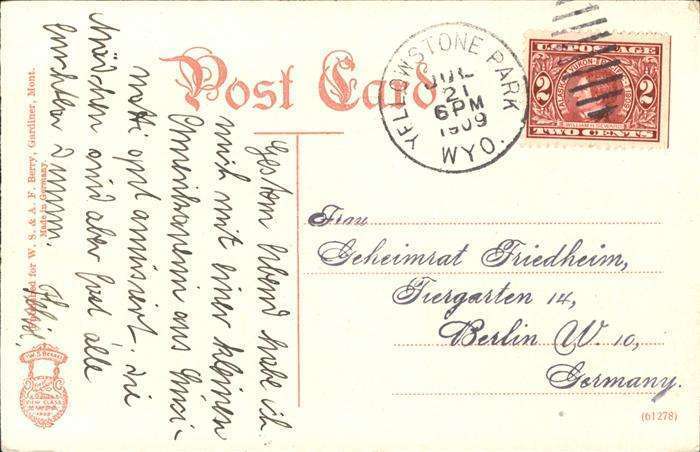 Post Card
YELLOWSTONE PARK
JUL
21
6 PM
1909
WYO.
U.S. POSTAGE
2 2
1909
TWO CENTS
Gestern Abend habe ich
mich mit einer kleinen
Amerikanerin aus
nati gut amüsiert. Die
Mädchen sind aber fast alle
furchtbar dumm.
Frau
Geheimrat Friedheim,
Tiergarten 14,
Berlin W. 10,
Germany.
(61278)
Published for W. S. & A. F. Berry, Gardiner, Mont.
Made in Germany.